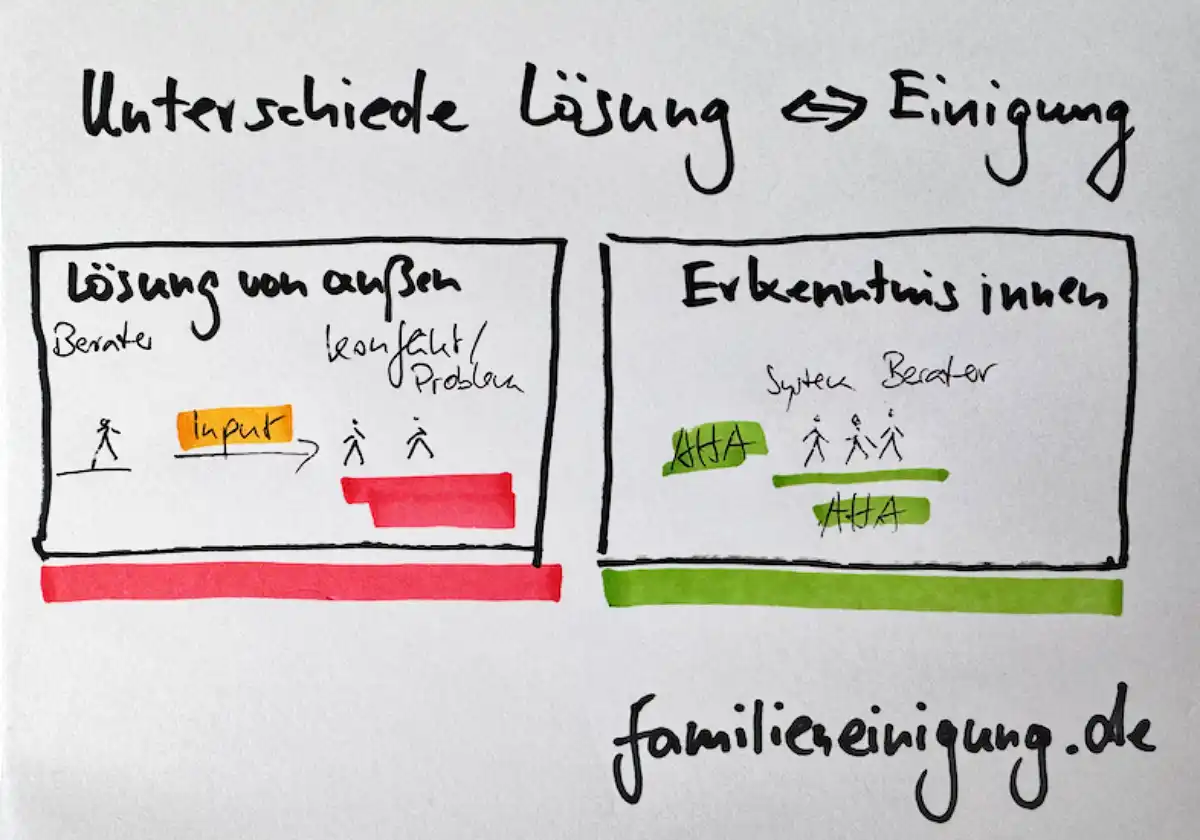 Unterschiede Lösung <=> Einigung
Lösung von außen
Berater
Konflikt/
Problem
Input
Erkenntnis innen
System Berater
AHA
AHA
familieneinigung.de